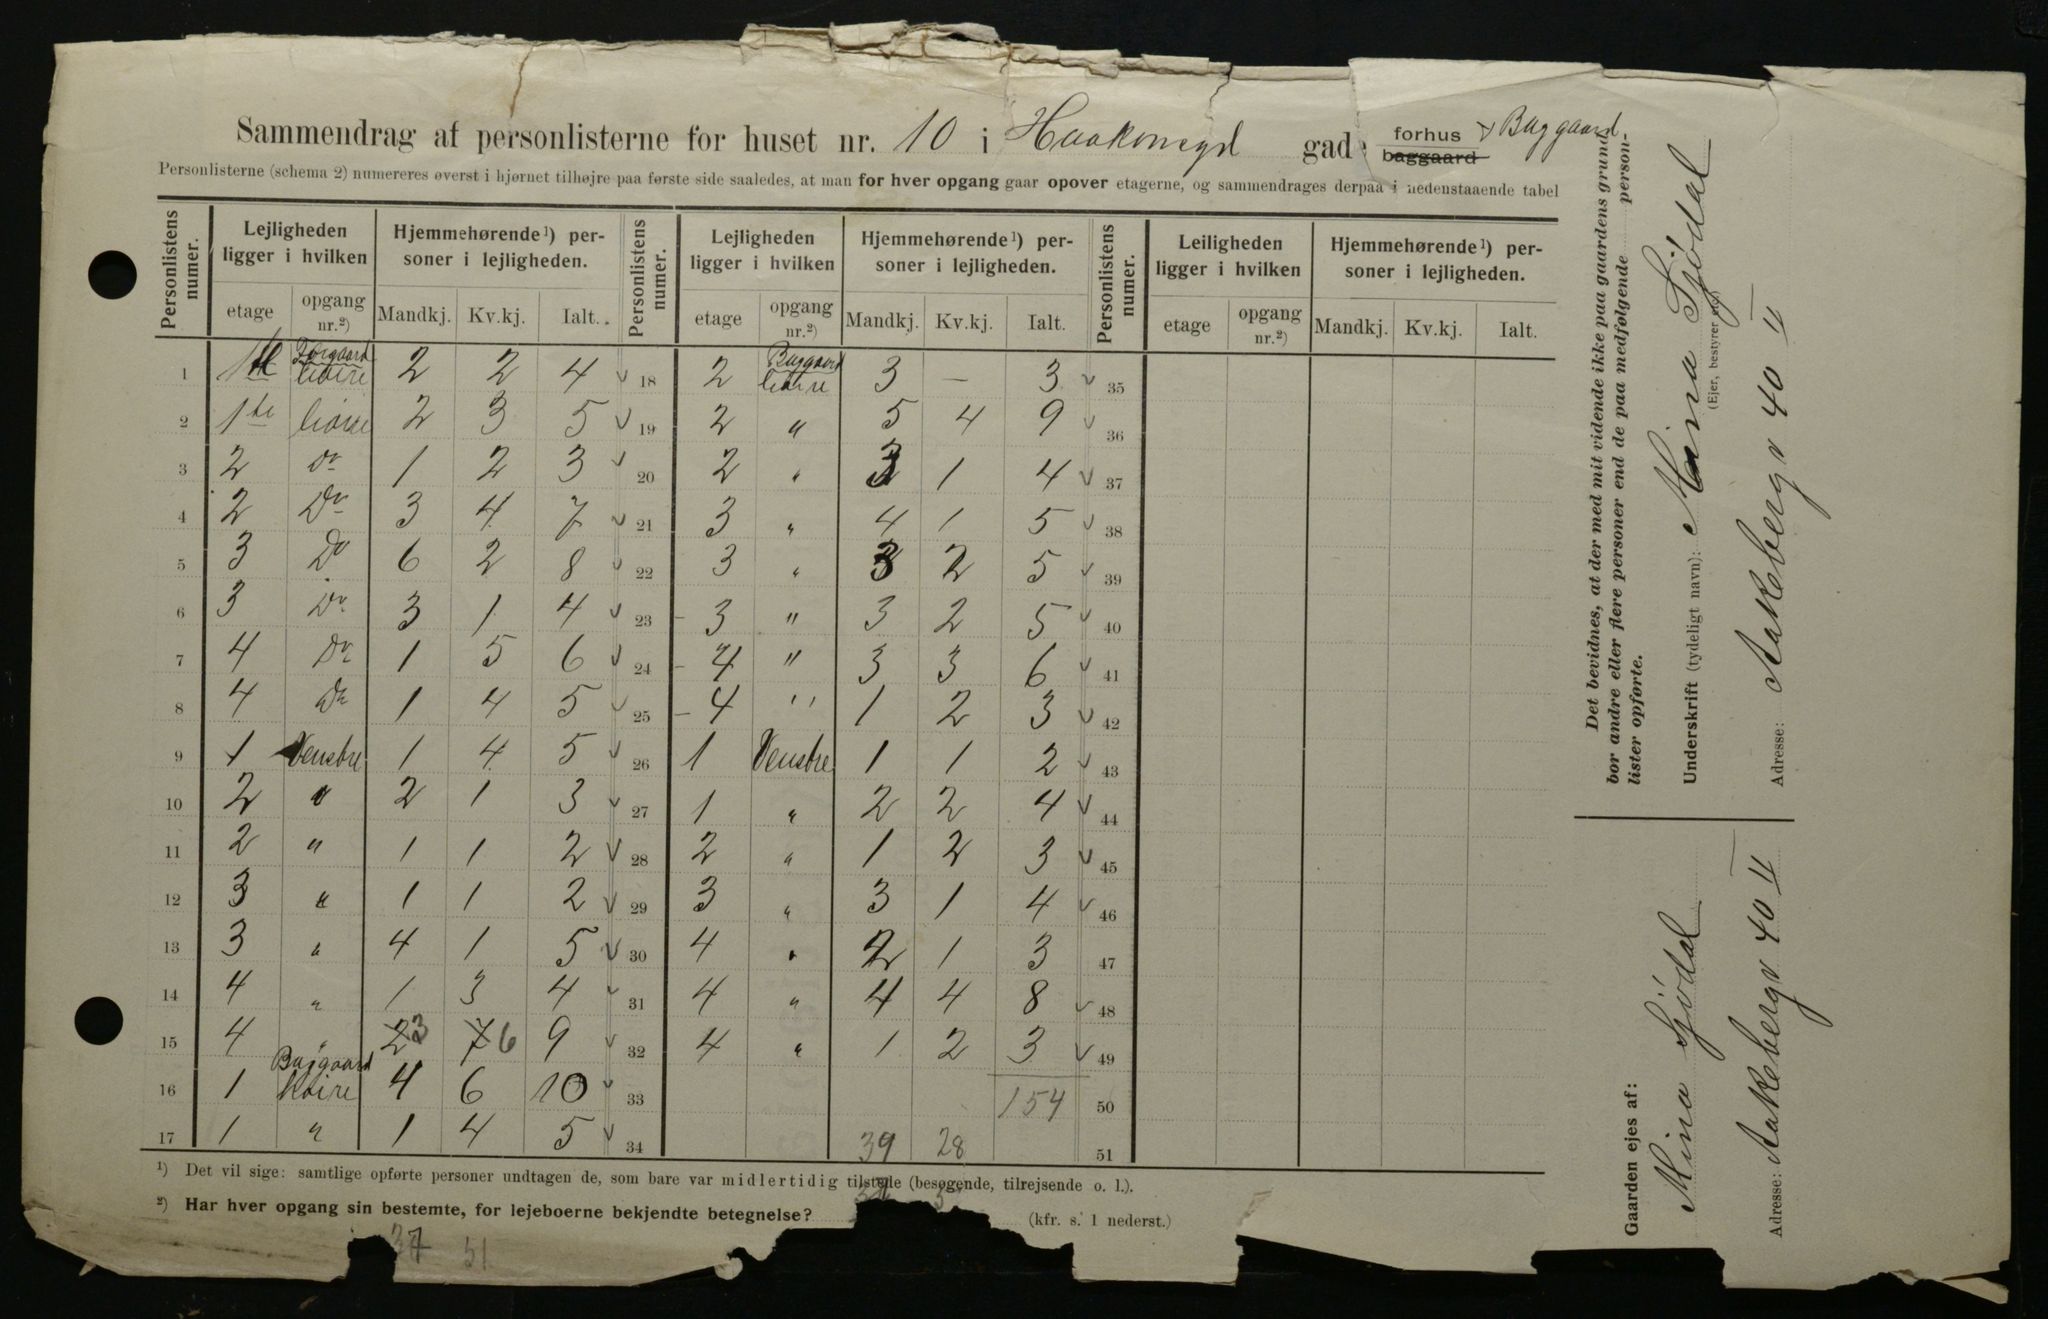 Sammendrag af personlisterne for huset nr. 10 i Haakonsgd gade forhus + Baggaard
baggaard
Personlisterne (schema 2) numereres øverst i hjørnet tilhøjre paa første side saaledes, at man for hver opgang gaar opover etagerne, og sammendrages derpaa i nedenstaaende tabel
Personlistens numer. Lejligheden ligger i hvilken Hjemmehørende¹) personer i lejligheden. Personlistens numer. Lejligheden ligger i hvilken Hjemmehørende¹) personer i lejligheden. Personlistens numer. Leiligheden ligger i hvilken Hjemmehørende¹) personer i lejligheden.
etage opgang nr.²) Mandkj. Kv.kj. Ialt. etage opgang nr.²) Mandkj. Kv.kj. Ialt. etage opgang nr.²) Mandkj. Kv.kj. Ialt.
1 1ste Forgaard høire 2 2 4 18 2 Baggaard høire 3 – 3 35
2 1ste høire 2 3 5 19 2 " 5 4 9 36
3 2 Do 1 2 3 20 2 " 3 1 4 37
4 2 Do 3 4 7 21 3 " 4 1 5 38
5 3 Do 6 2 8 22 3 " 3 2 5 39
6 3 Do 3 1 4 23 3 " 3 2 5 40
7 4 Do 1 5 6 24 4 " 3 3 6 41
8 4 Do 1 4 5 25 4 " 1 2 3 42
9 1 Venstre 1 4 5 26 1 Venstre 1 1 2 43
10 2 " 2 1 3 27 1 " 2 2 4 44
11 2 " 1 1 2 28 2 " 1 2 3 45
12 3 " 1 1 2 29 3 " 3 1 4 46
13 3 " 4 1 5 30 4 " 2 1 3 47
14 4 " 1 3 4 31 4 " 4 4 8 48
15 4 " 2 3 7 6 9 32 4 " 1 2 3 49
16 1 Baggaard høire 4 6 10 33 154 50
17 1 " 1 4 5 34 39 28 51
¹) Det vil sige: samtlige opførte personer undtagen de, som bare var midlertidig tilstede (besøgende, tilrejsende o. l.).
²) Har hver opgang sin bestemte, for lejeboerne bekjendte betegnelse? (kfr. s. 1 nederst.)
51
Det bevidnes, at der med mit vidende ikke paa gaardens grund
bor andre eller flere personer end de paa medfølgende personlister opførte.
Underskrift (tydeligt navn): Mina Sjödal
(Ejer, bestyrer
Adresse: Aakebergv 40 II
Gaarden ejes af:
Mina Sjödal
Adresse: Aakebergv 40 II